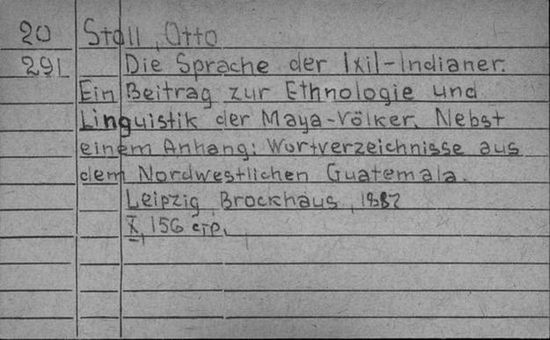 20 Stoll, Otto
291 Die Sprache der Ixil-Indianer.
Ein Beitrag zur Ethnologie und
Linguistik der Maya-Völker. Nebst
einem Anhang: Wortverzeichnisse aus
dem Nordwestlichen Guatemala.
Leipzig, Brockhaus, 1887
X, 156 стр.